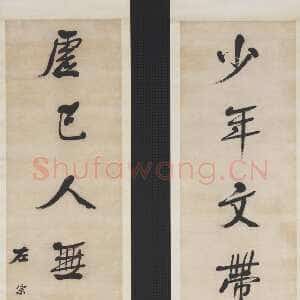 少年文帶
虛己人無
左宗
Shufawang.CN